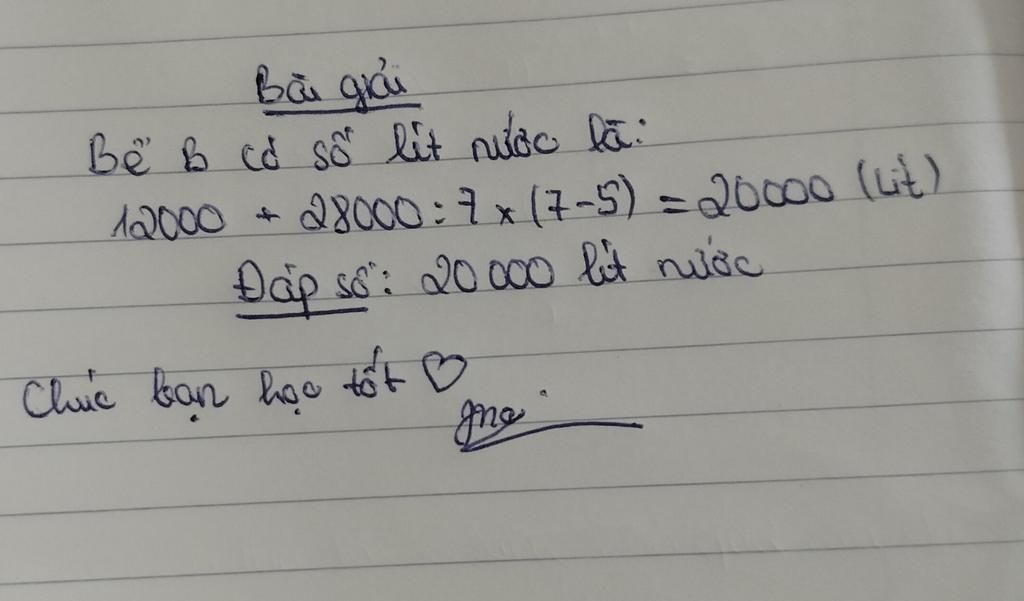 Bài giải
Bể B có số lít nước là:
12000 + 28000 : 7 x (7-5) = 20000 (lít)
Đáp số: 20000 lít nước
Chúc bạn học tốt ♡